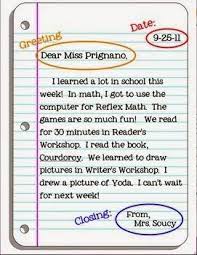 Greeting
Date:
9-25-11
Dear Miss Prignano,
I learned a lot in school this
week!  In math, I got to use the
computer for Reflex Math.  The
games are so much fun!  We read
for 30 minutes in Reader's
Workshop.  I read the book,
Courdoroy.  We learned to draw
pictures in Writer's Workshop.  I
drew a picture of Yoda.  I can't wait
for next week!
Closing:
From,
Mrs. Soucy